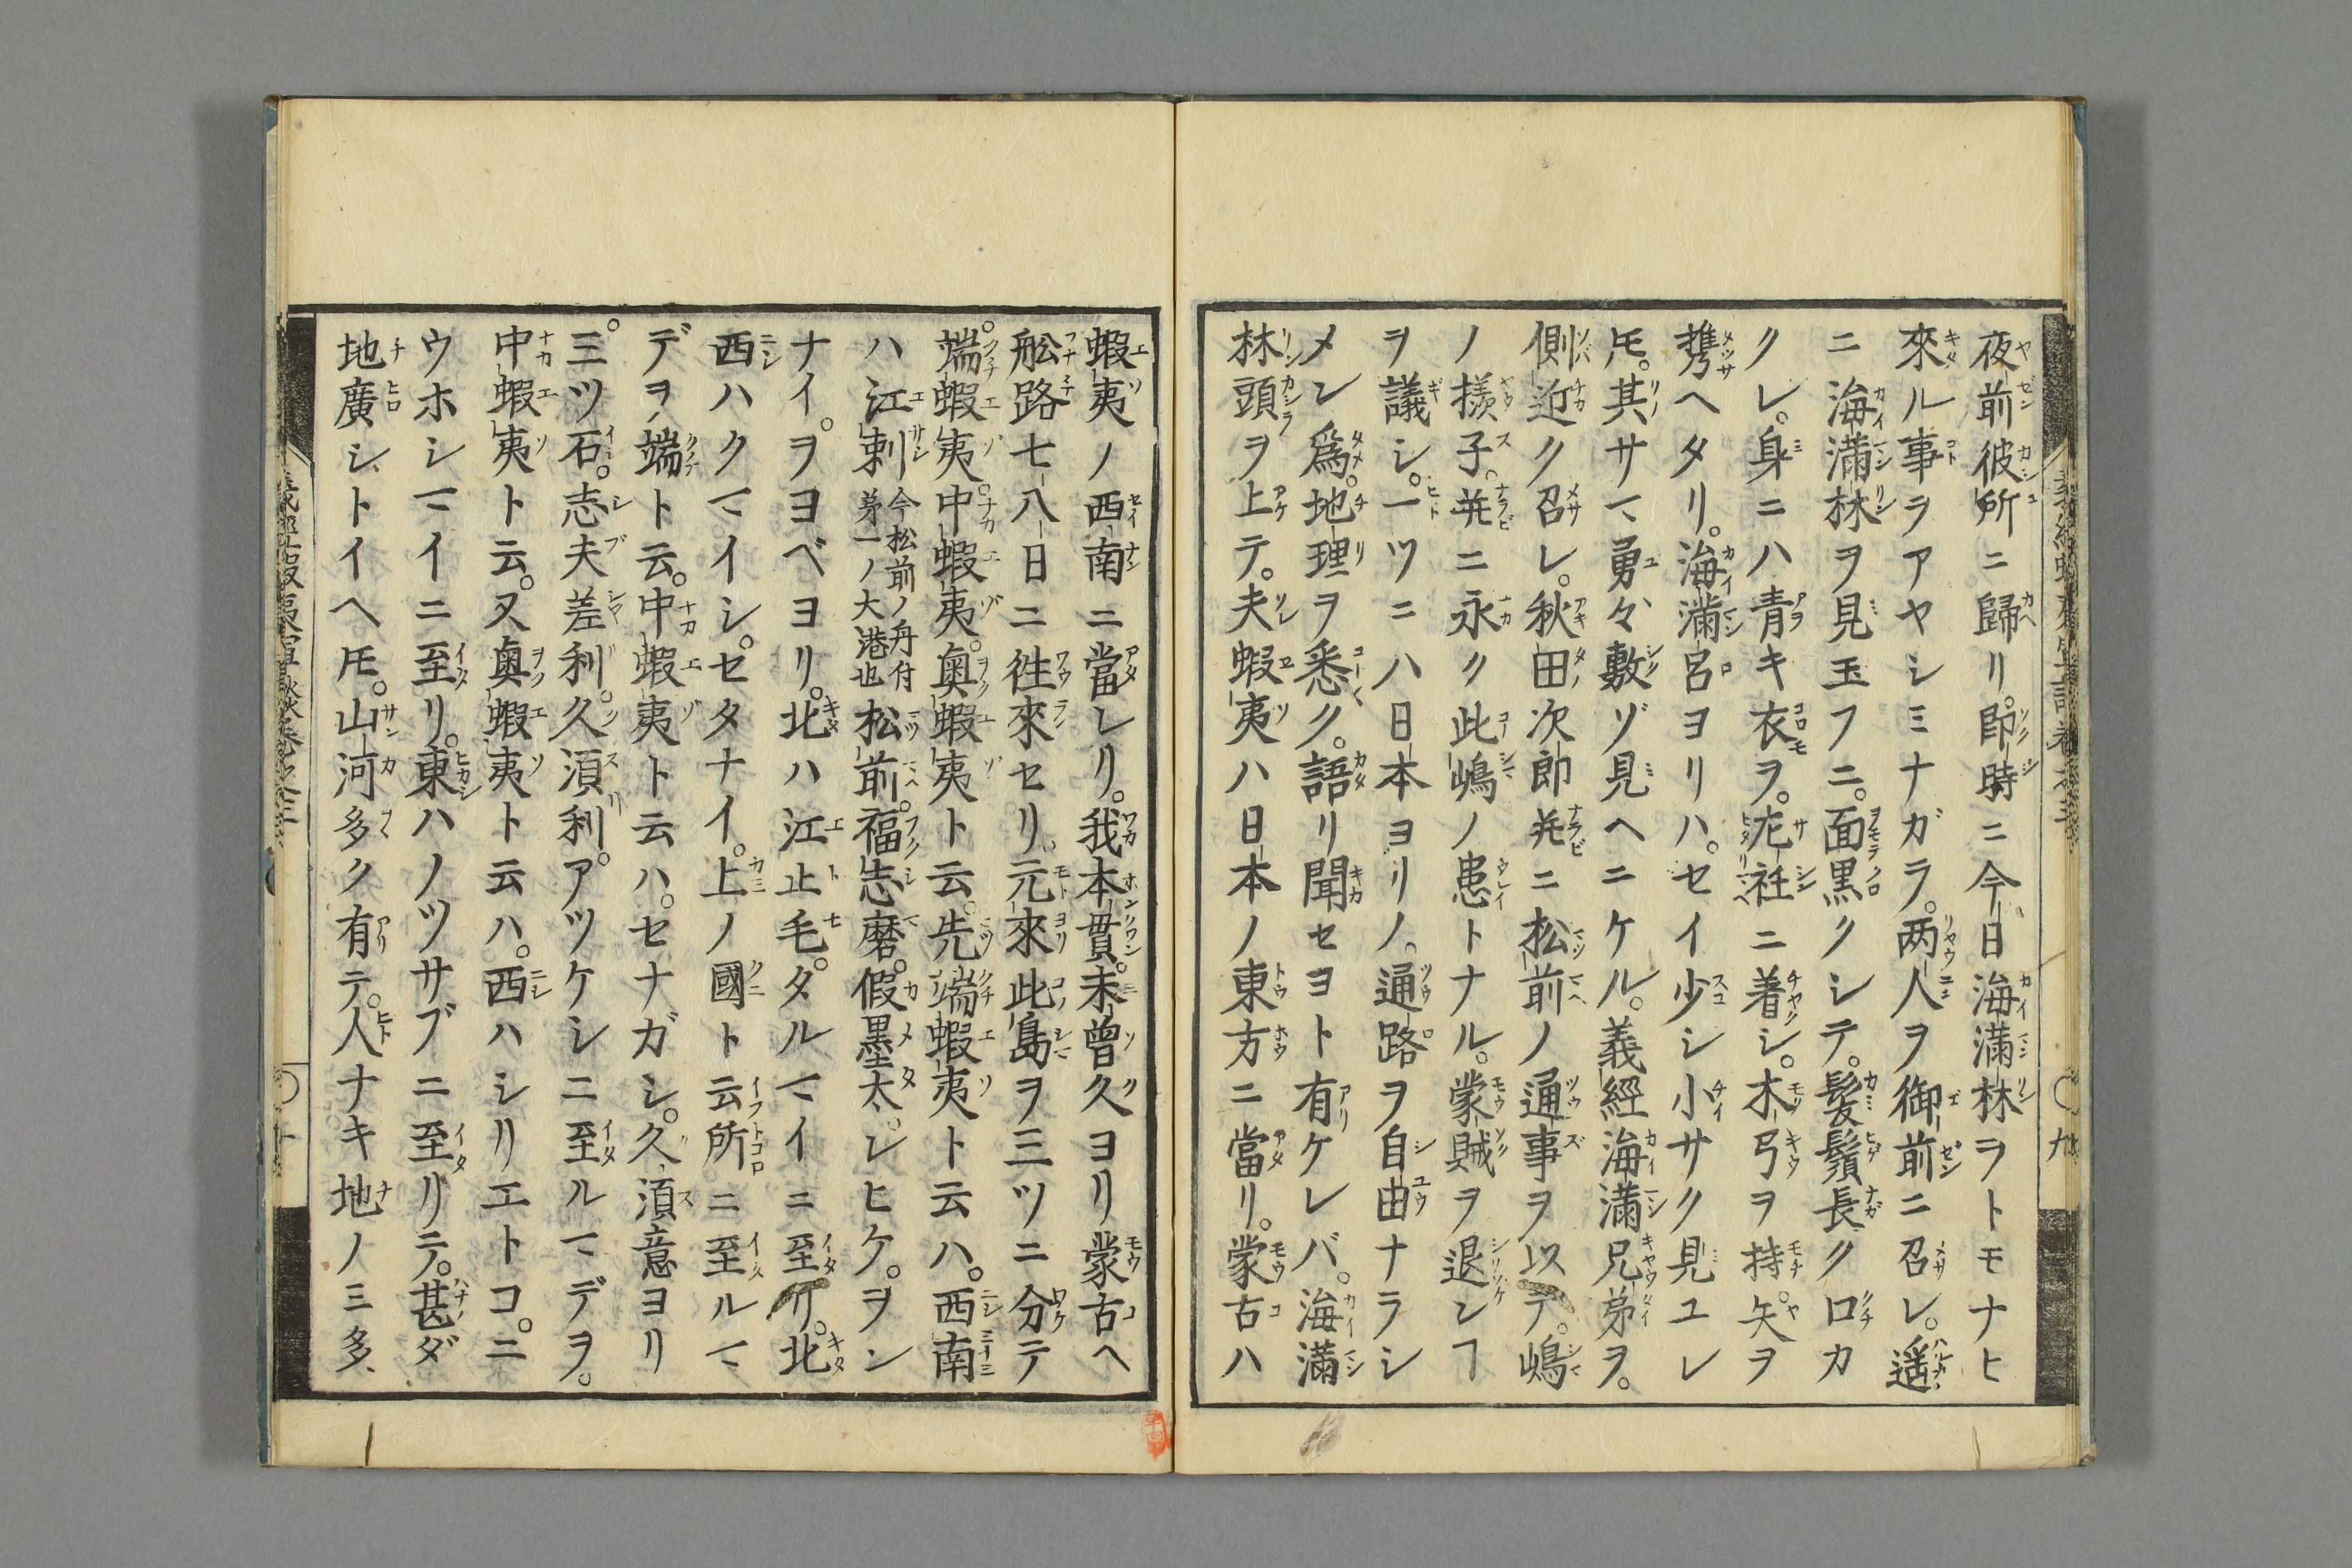 夜前彼所ニ歸リ。即時ニ今日海滿林ヲトモナヒ
來ル事ヲアヤシミナガラ。两人ヲ御前ニ召レ。遥
ニ海滿林ヲ見玉フニ。面黒クシテ。髪鬚長ク口カ
クレ。身ニハ青キ衣ヲ。左衽ニ着シ。木弓ヲ持。矢ヲ
携ヘタリ。海滿呂ヨリハ。セイ少シ小サク見ユレ
𪜈。其サマ勇々敷ゾ見ヘニケル。義經海滿兄弟ヲ。
側近ク召レ。秋田次郎并ニ松前ノ通事ヲ以テ。嶋
ノ様子。并ニ永ク此嶋ノ患トナル。蒙賊ヲ退ンヿ
ヲ議シ。一ツニハ日本ヨリノ。通路ヲ自由ナラシ
メン爲。地理ヲ悉ク。語リ聞セヨト有ケレバ。海滿
林頭ヲ上テ。夫蝦夷ハ日本ノ東方ニ當リ。蒙古ハ
蝦夷ノ西南ニ當レリ。我本貫。未曽久ヨリ蒙古ヘ
舩路七八日ニ徃來セリ。元來此島ヲ三ツニ分テ
端蝦夷。中蝦夷。奥蝦夷ト云。先端蝦夷ト云ハ。西南
ハ江刺今松前ノ舟付第一ノ大港也松前。福志磨。假墨太。レヒケ。ヲン
ナイ。ヲヨベヨリ。北ハ江止毛。タルマイニ至リ。北
西ハクマイシ。セタナイ。上ノ國ト云所ニ至ルマ
デヲ端ト云。中蝦夷ト云ハ。セナガシ。久須意ヨリ
三ツ石。志夫差利。久須利。アツケシニ至ルマデヲ。
中蝦夷ト云。又奥蝦夷ト云ハ。西ハシリエトコ。ニ
ウホシマイニ至リ。東ハノツサブニ至リテ。甚ダ
地廣シトイヘ𪜈。山河多ク有テ。人ナキ地ノミ多
義經蝦夷軍談巻之三
〇九
〇十